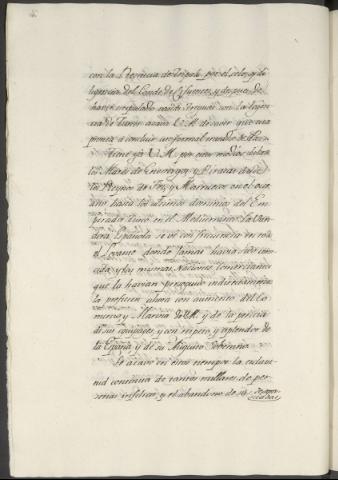 con la Regencia de Tripoli por el zelo, y di-
ligencia del Conde de Cifuentes, y despues de
haver
de Tunez acava V.M. de saver que esta
pronta á concluir un formal tratado de Paz.
Tiene ya V.M. por este medio libres
los Mares de Enemigos, y Piratas desde
los Reynos de Fez, y Marruecos en el Oce-
ano hasta los ultimos dominios del Em-
perador Turco en el Mediterraneo: La Van-
dera Española se vé con frecuencia en todo
el Levante donde jamas havia sido cono-
cida, y las mismas Naciones comerciantes
que la havian perseguido indirectamente
la prefieren ahora con aumento del Co-
mercio, y Marina de V.M. y de la pericia
de sus equipages, y con respeto, y esplendor de
la España, y de su Augusto Soberano.
Se acavó en estos tiempos la esclavi-
tud continua de tantos millares de per-
sonas infelices, y el abandono de sus